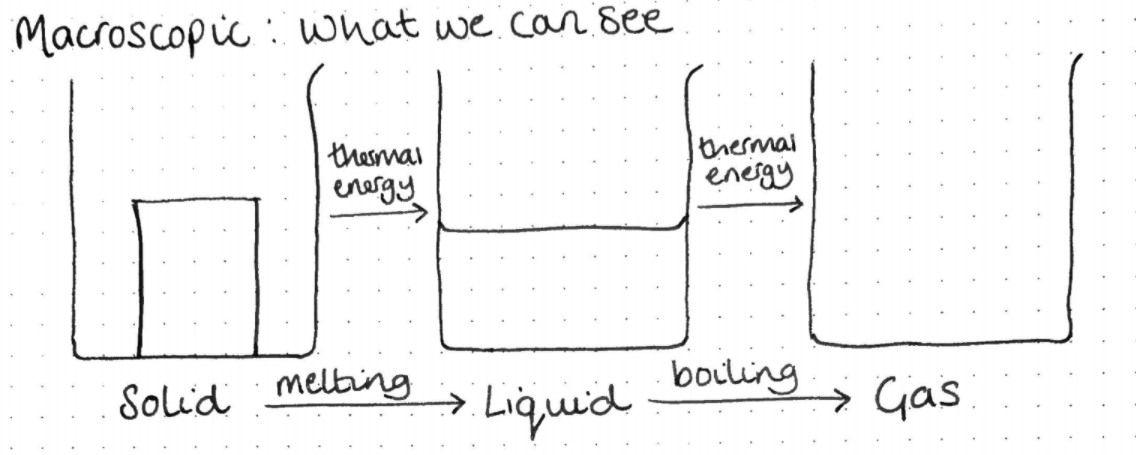 Macroscopic: what we can see
thermal
energy
thermal
energy
Solid melting Liquid boiling Gas